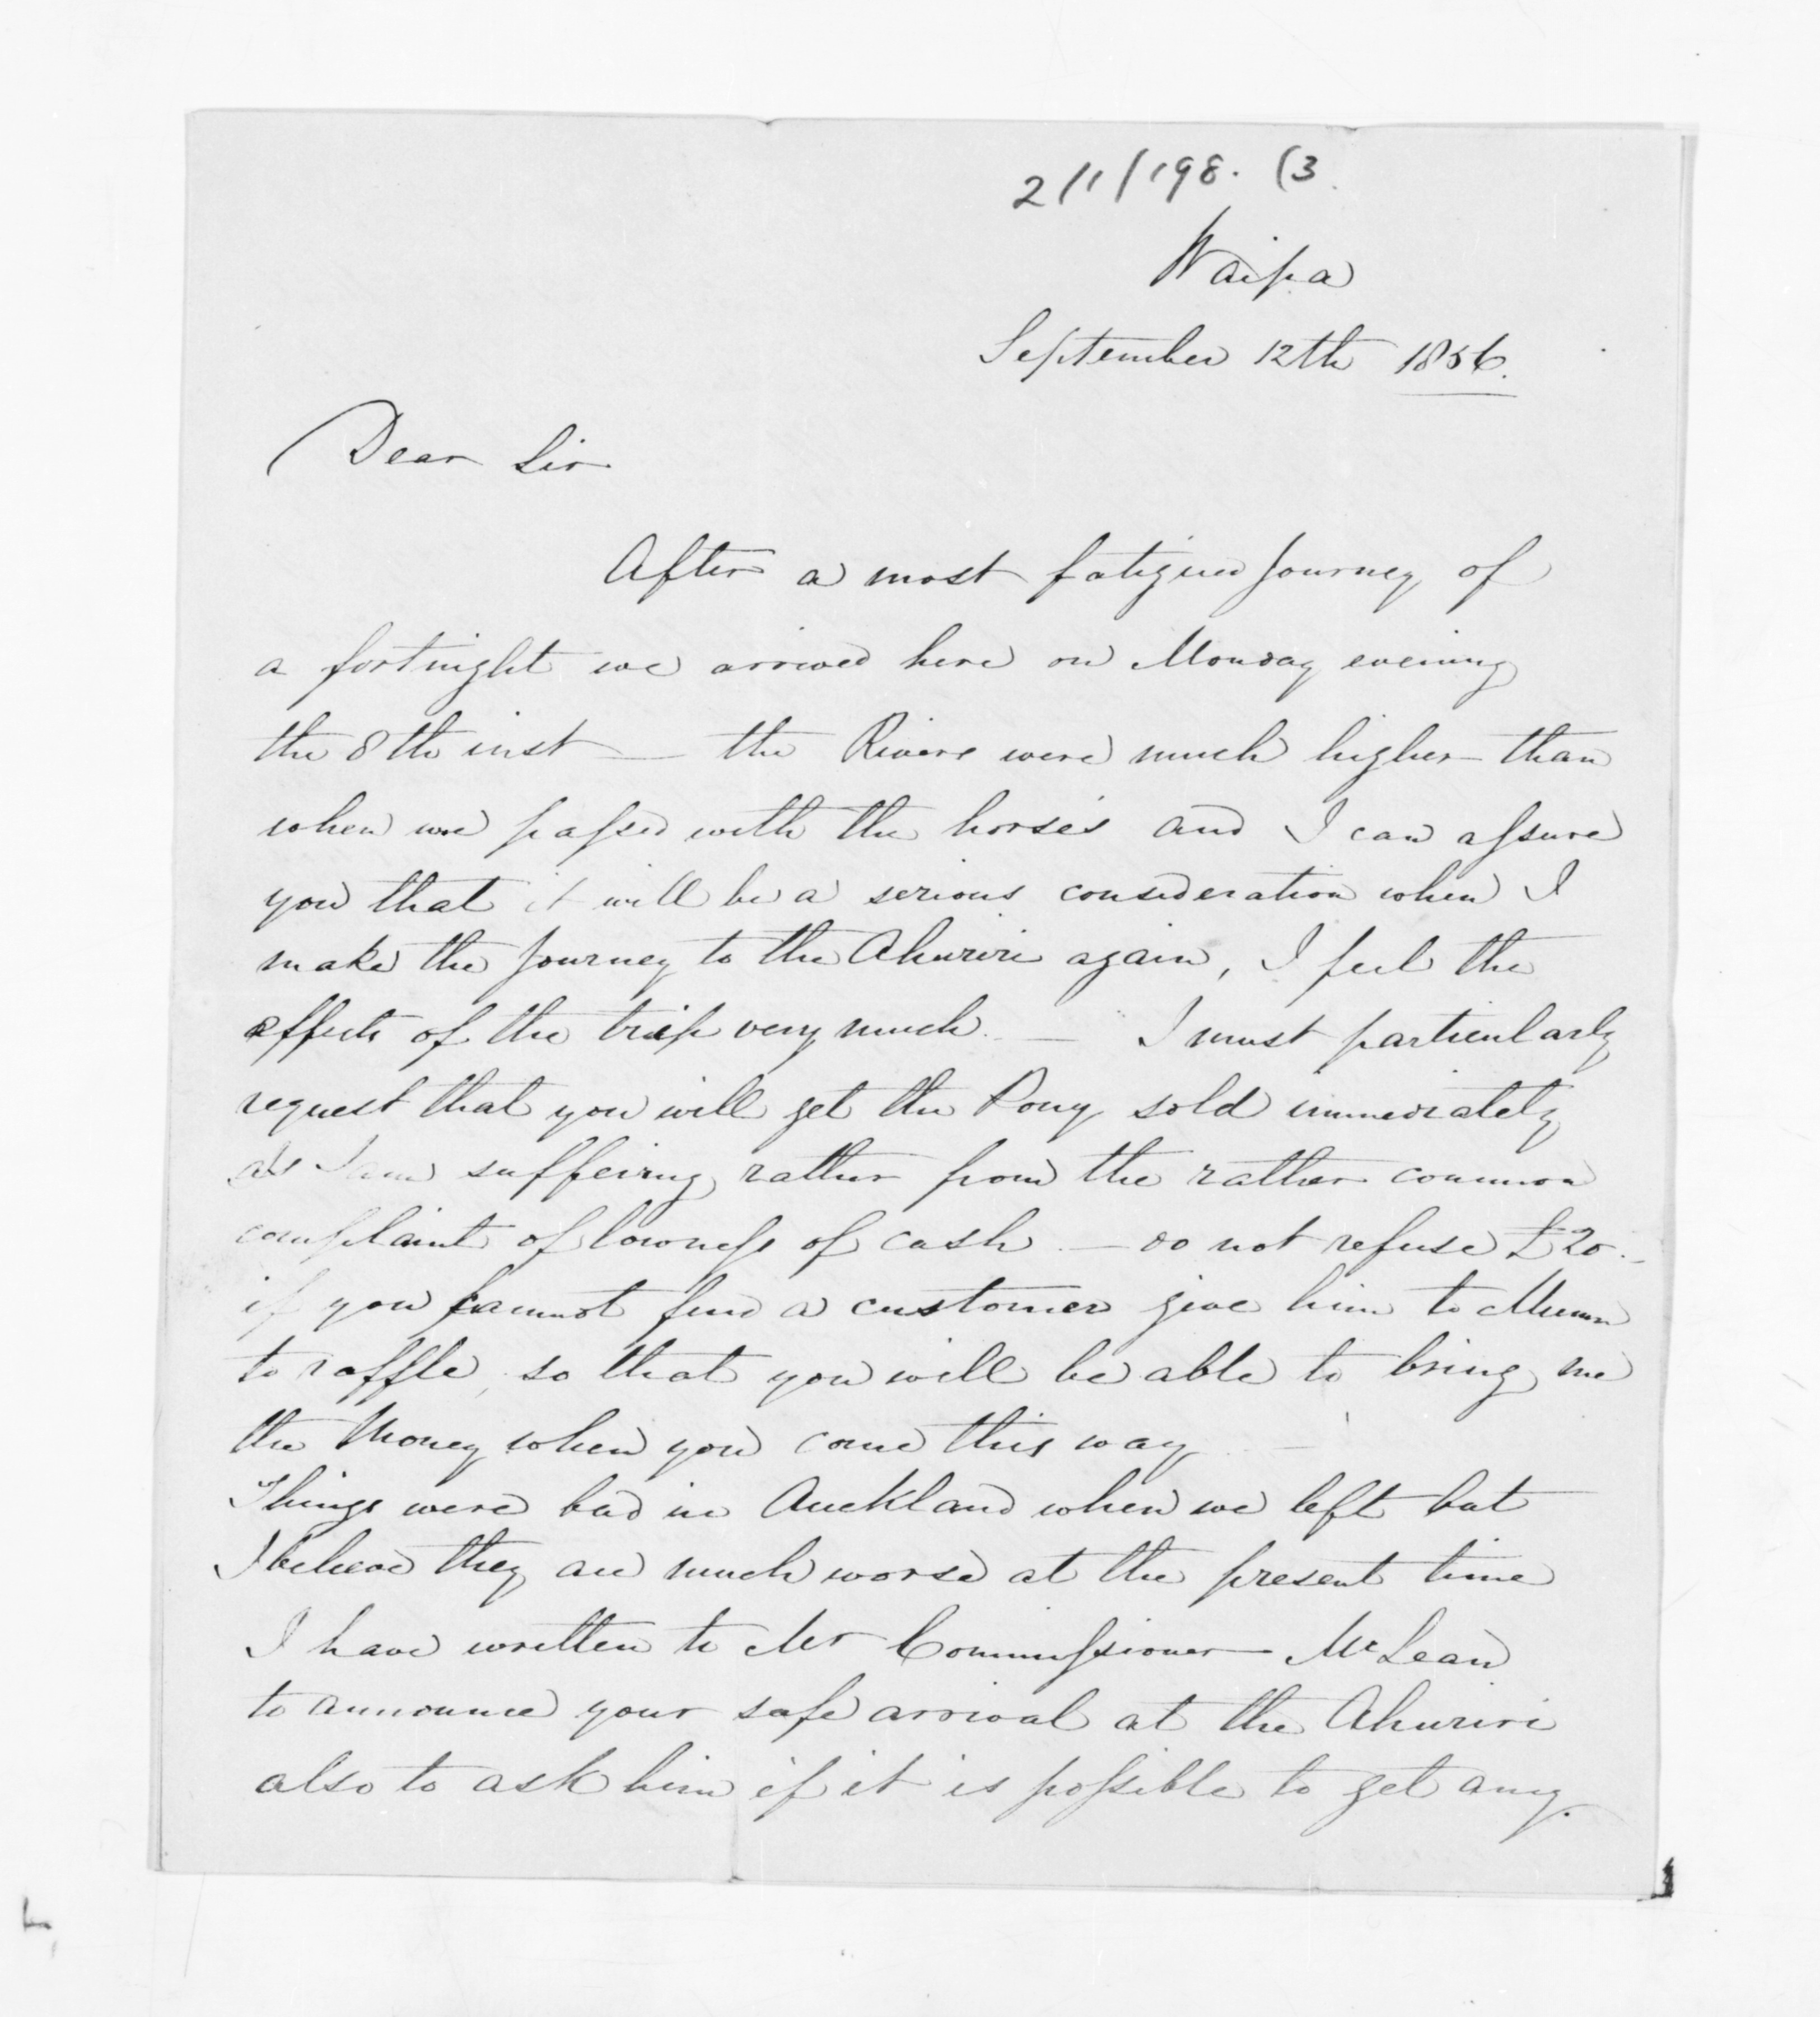 2/1/198. (3
Waipa
September 12th 1856.
Dear Sir
After a most fatigued Journey of
a fortnight we arrived here on Monday evening
the 8th inst — the Rivers were much higher than
when we passed with the horses and I can assure
you that it will be a serious consideration when I
make the Journey to the Ahuriri again, I feel the
effects of the trip very much. — I must particularly
request that you will get the Pony sold immediately
as I am suffering rather from the rather common
complaint of lowness of cash — do not refuse £20. —
if you cannot find a customer give him to Munn
to raffle, so that you will be able to bring me
the Money when you come this way
Things were bad in Auckland when we left but
I believe they are much worse at the present time
I have written to Mr Commissioner McLean
to announce your safe arrival at the Ahuriri
also to ask him if it is possible to get any.